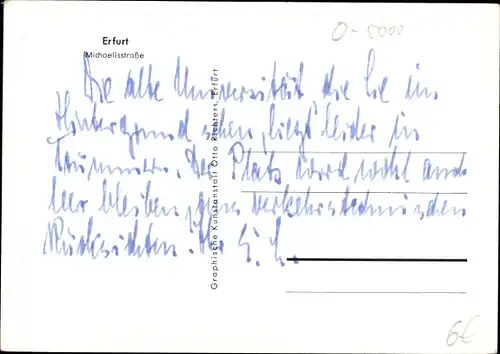 O-5000
Erfurt
Michaelisstraße
Die alte Universität die Sie im
Hintergrund sehen, liegt leider in
Trümmern. Der Platz wird wohl auch
leer bleiben, aus verkehrstechnischen
Rücksichten.
Graphische Kunstanstalt Otto Richters, Erfurt
6€